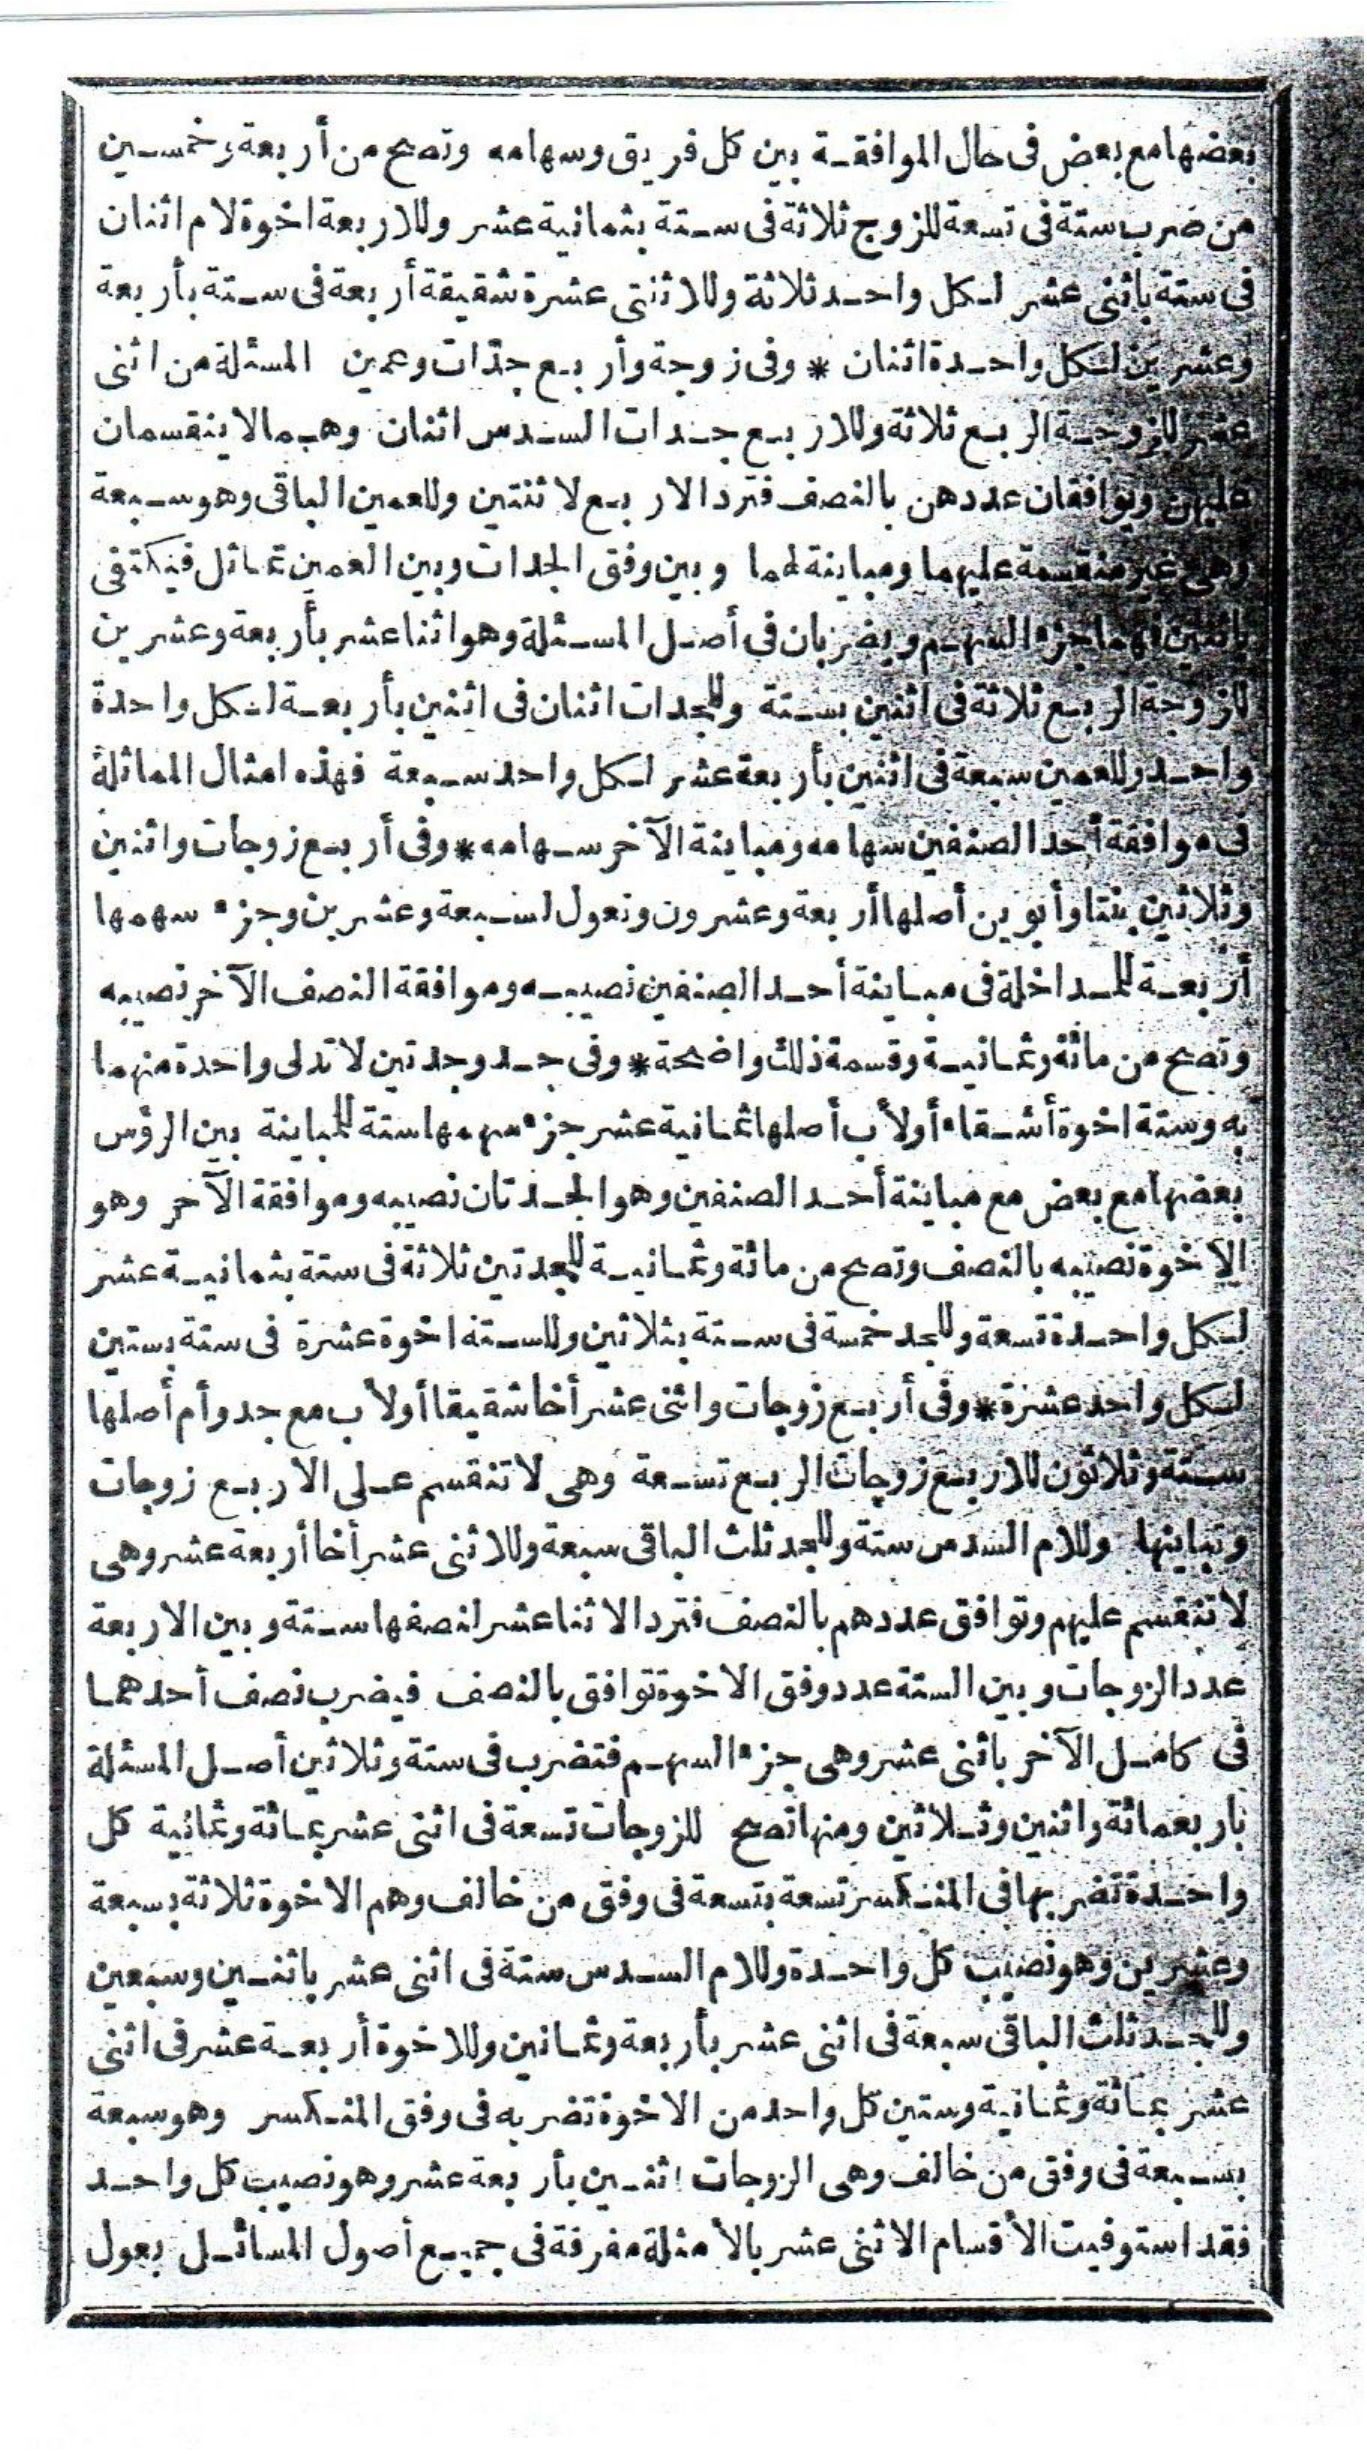 بعضها مع بعض فى حال الموافقة بين كل فريق وسهامه وتصح من أربعة وخمسين
من ضرب ستة فى تسعة للزوج ثلاثة فى ستة بثمانية عشر وللاربعة اخوة لام اثنان
فى ستة باثنى عشر لكل واحد ثلاثة وللاثنتى عشرة شقيقة أربعة فى ستة بأربعة
وعشرين لكل واحدة اثنان * وفى زوجة وأربع جدّات وعمين المسئلة من اثنى
عشر للزوجة الربع ثلاثة وللاربع جدات السدس اثنان وهما لا ينقسمان
عليهن ويوافقان عددهن بالنصف فترد الاربع لاثنتين وللعمين الباقى وهو سبعة
وهى غير منقسمة عليهما ومباينة لهما وبين وفق الجدات وبين العمين تماثل فيكتفى
باثنين فهما جزء السهم ويضربان فى أصل المسئلة وهو اثنا عشر بأربعة وعشرين
للزوجة الربع ثلاثة فى اثنين بستة وللجدات اثنان فى اثنين بأربعة لكل واحدة
واحد وللعمين سبعة فى اثنين بأربعة عشر لكل واحد سبعة فهذه امثال المماثلة
فى موافقة أحد الصنفين سهامه ومباينة الآخر سهامه * وفى أربع زوجات واثنين
وثلاثين بنتا وأبوين أصلها أربعة وعشرون وتعول لسبعة وعشرين وجزء سهمها
أربعة للمداخلة فى مباينة أحد الصنفين نصيبه وموافقة النصف الآخر نصيبه
وتصح من مائة وثمانية وقسمة ذلك واضحة * وفى جد وجدتين لا تدلى واحدة منهما
به وستة اخوة أشقاء أولأب أصلها ثمانية عشر جزء سهمها ستة للمباينة بين الرؤس
بعضها مع بعض مع مباينة أحد الصنفين وهو الجدتان نصيبه وموافقة الآخر وهو
الاخوة نصيبه بالنصف وتصح من مائة وثمانية للجدتين ثلاثة فى ستة بثمانية عشر
لكل واحدة تسعة وللجد خمسة فى ستة بثلاثين وللستة اخوة عشرة فى ستة بستين
لكل واحد عشرة * وفى أربع زوجات واثنى عشر أخا شقيقا أولأب مع جد وأم أصلها
ستة وثلاثون للاربع زوجات الربع تسعة وهى لا تنقسم على الاربع زوجات
وتباينها وللام السدس ستة وللجد ثلث الباقى سبعة وللاثنى عشر أخا أربعة عشر وهى
لا تنقسم عليهم وتوافق عددهم بالنصف فترد الاثنا عشر لنصفها ستة وبين الاربعة
عدد الزوجات وبين الستة عدد وفق الاخوة توافق بالنصف فيضرب نصف أحدهما
فى كامل الآخر باثنى عشر وهى جزء السهم فتضرب فى ستة وثلاثين أصل المسئلة
باربعمائة واثنين وثلاثين ومنها تصح للزوجات تسعة فى اثنى عشر بمائة وثمانية كل
واحدة تضربها فى المنكسر تسعة بتسعة فى وفق من خالف وهم الاخوة ثلاثة بسبعة
وعشرين وهو نصيب كل واحدة وللام السدس ستة فى اثنى عشر باثنين وسبعين
وللجد ثلث الباقى سبعة فى اثنى عشر بأربعة وثمانين وللاخوة أربعة عشر فى اثنى
عشر بمائة وثمانية وستين كل واحد من الاخوة تضربه فى وفق المنكسر وهو سبعة
بسبعة فى وفق من خالف وهى الزوجات اثنين بأربعة عشر وهو نصيب كل واحد
فقد استوفيت الأقسام الاثنى عشر بالأمثلة مفرقة فى جميع أصول المسائل بعول